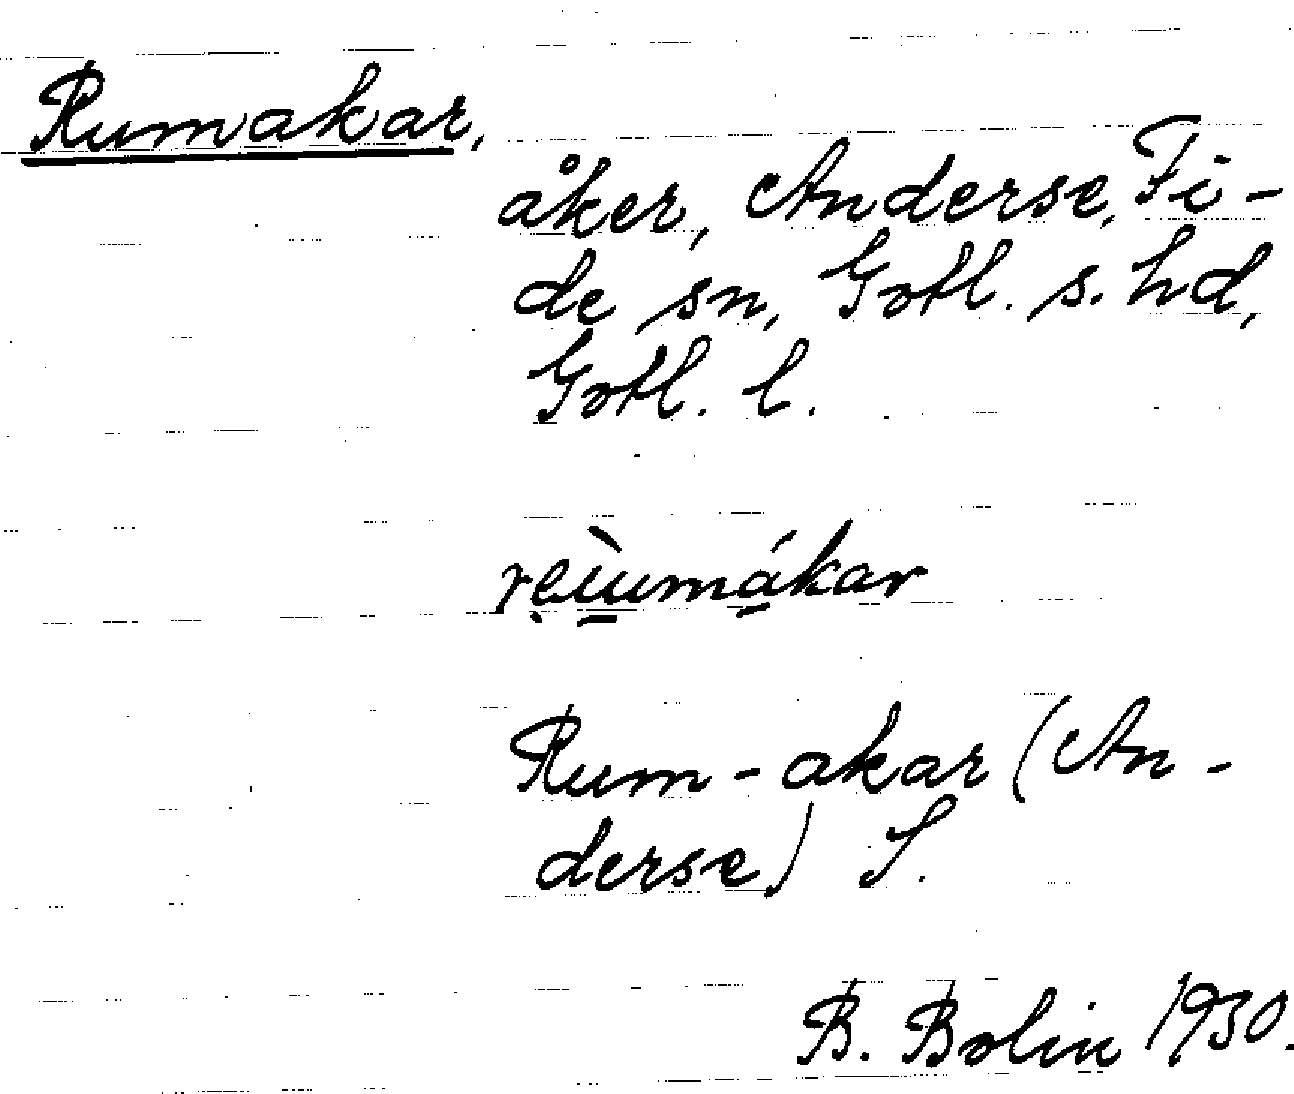 Rumakar,
åker, Anderse, Fi-
de sn, Gotl. s. hd,
Gotl. l.
reùumákar
Rum-akar (An-
derse) S.
B. Bolin 1930.